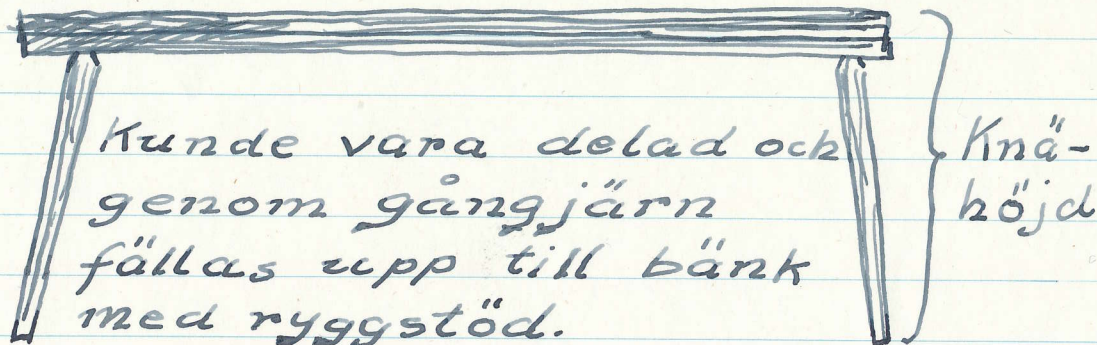 Kunde vara delad och
genom gångjärn
fällas upp till bänk
med ryggstöd.
Knä-
höjd